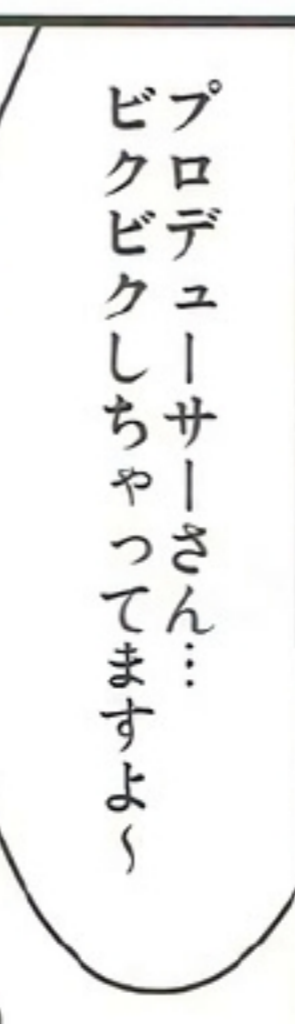 プロデューサーさん…
ビクビクしちゃってますよ～